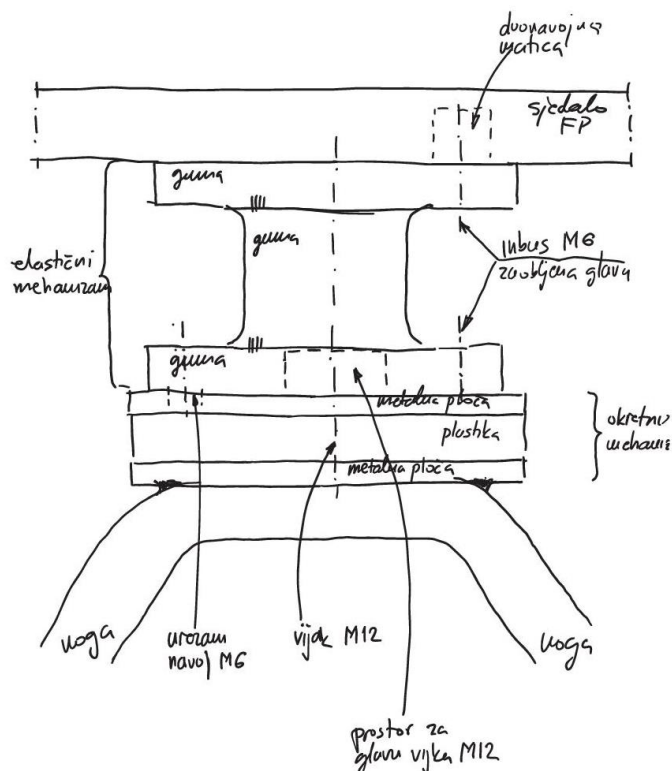 dvonavojna
matica
sjedalo
FP
guma
guma
elastični
mehanizam
inbus M6
zaobljena glava
guma
metalna ploča
plastika
metalna ploča
okretni
mehaniz
noga
urezan
navoj M6
vijak M12
noga
prostor za
glavu vijka M12